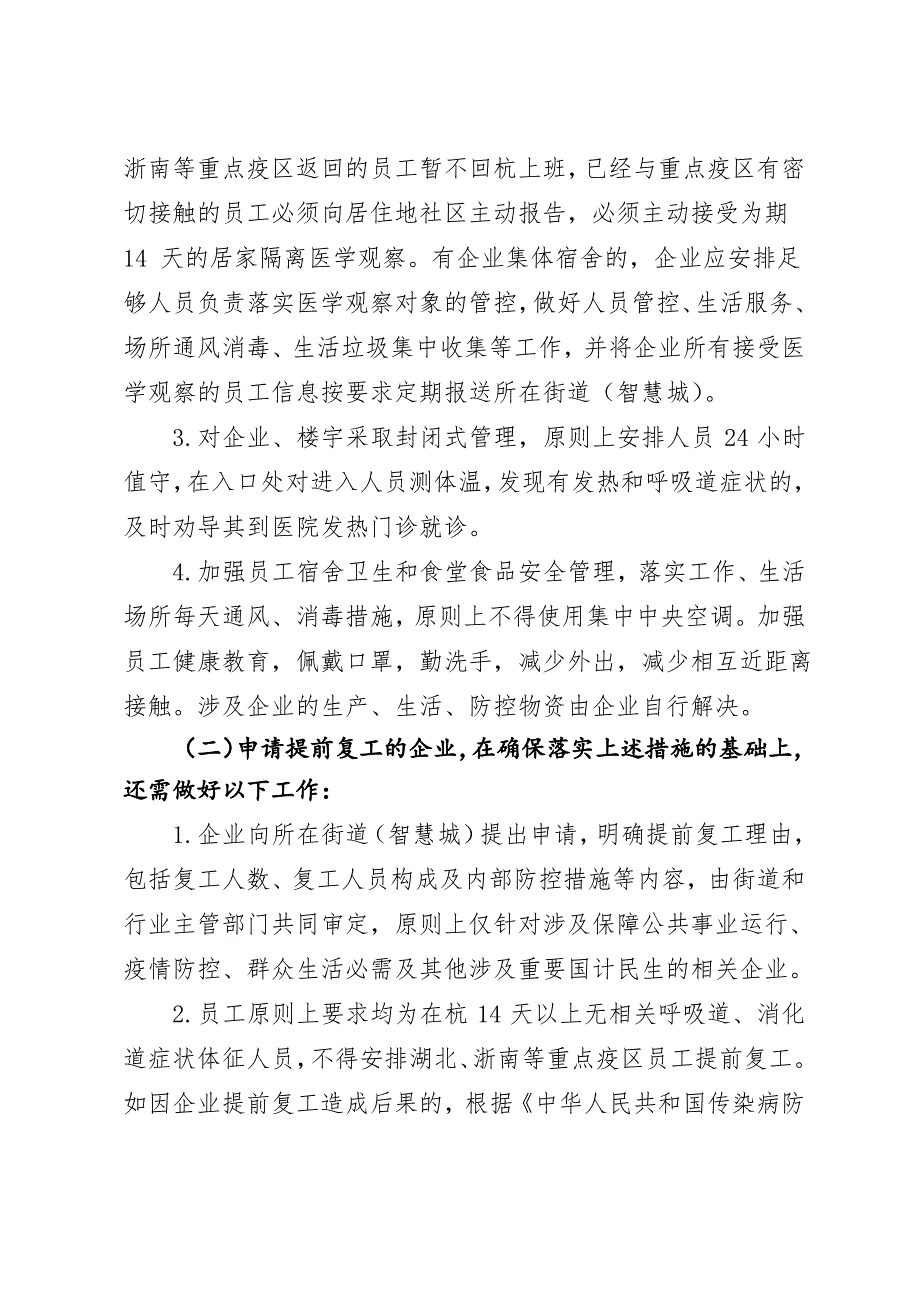 浙南等重点疫区返回的员工暂不回杭上班，已经与重点疫区有密
切接触的员工必须向居住地社区主动报告，必须主动接受为期
14 天的居家隔离医学观察。有企业集体宿舍的，企业应安排足
够人员负责落实医学观察对象的管控，做好人员管控、生活服务、
场所通风消毒、生活垃圾集中收集等工作，并将企业所有接受医
学观察的员工信息按要求定期报送所在街道（智慧城）。
3.对企业、楼宇采取封闭式管理，原则上安排人员 24 小时
值守，在入口处对进入人员测体温，发现有发热和呼吸道症状的，
及时劝导其到医院发热门诊就诊。
4.加强员工宿舍卫生和食堂食品安全管理，落实工作、生活
场所每天通风、消毒措施，原则上不得使用集中中央空调。加强
员工健康教育，佩戴口罩，勤洗手，减少外出，减少相互近距离
接触。涉及企业的生产、生活、防控物资由企业自行解决。
（二）申请提前复工的企业，在确保落实上述措施的基础上，
还需做好以下工作：
1.企业向所在街道（智慧城）提出申请，明确提前复工理由，
包括复工人数、复工人员构成及内部防控措施等内容，由街道和
行业主管部门共同审定，原则上仅针对涉及保障公共事业运行、
疫情防控、群众生活必需及其他涉及重要国计民生的相关企业。
2.员工原则上要求均为在杭 14 天以上无相关呼吸道、消化
道症状体征人员，不得安排湖北、浙南等重点疫区员工提前复工。
如因企业提前复工造成后果的，根据《中华人民共和国传染病防